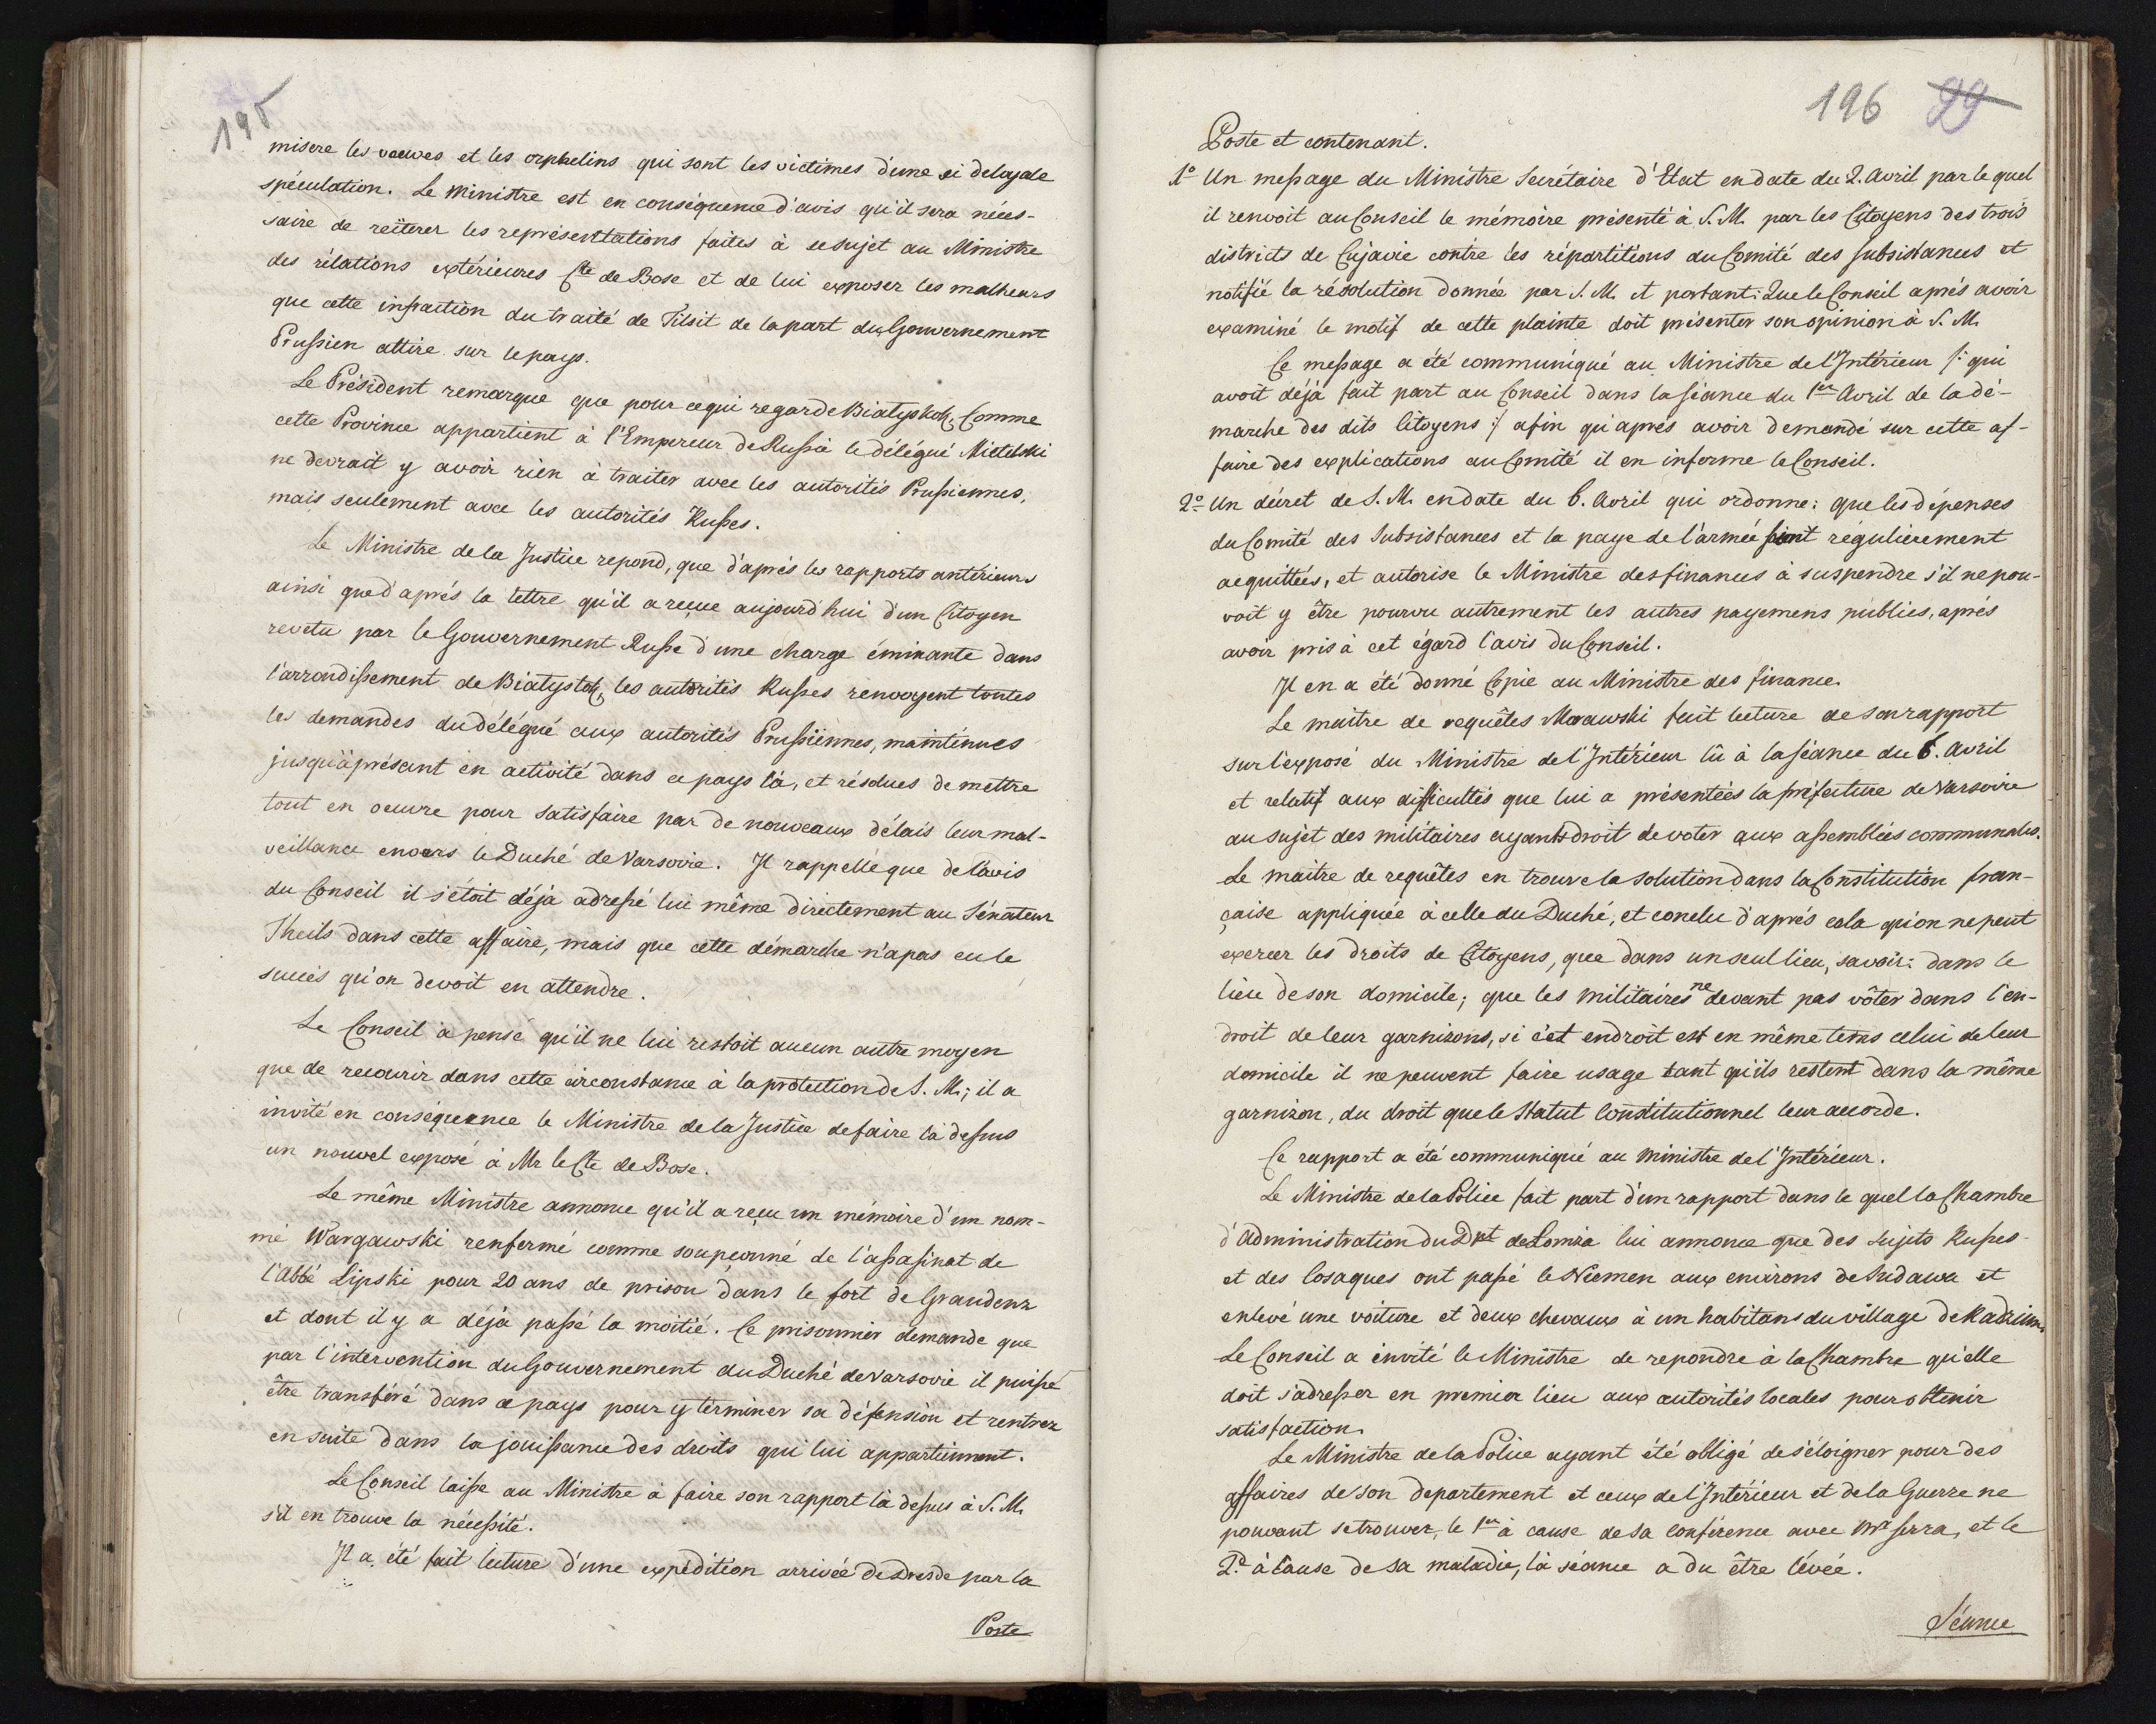 195
misere les veuves et les orphelins qui sont les victimes d'une si deloyale
spéculation. Le Ministre est en conséquence d'avis qu'il sera néces-
saire de reïterer les représentations faites à ce sujet au Ministre
des rélations extérieures Cte de Bose et de lui exposer les malheurs
que cette infraction du traité de Tilsit de la part du Gouvernement
Prussien attire sur le pays.
Le Président remarque que pour ce qui regarde Białystok, Comme
cette Province appartient à l'Empereur de Russie le délégué Mielelski
ne devrait y avoir rien à traiter avec les autorités Prussiennes,
mais seulement avec les autorités Russes.
Le Ministre de la Justice repond, que d'après les rapports antérieurs
ainsi que d'après la lettre qu'il a reçue aujourd'hui d'un Citoyen
revetu par le Gouvernement Russe d'une charge éminante dans
l'arrondissement de Białystok, les autorités Russes renvoyent toutes
les demandes du délégué aux autorités Prussiennes, maintenues
jusqu'àprésent en activité dans ce pays là, et résolues de mettre
tout en oeuvre pour satisfaire par de nouveaux délais leur mal-
veillance envers le Duché de Varsovie. Il rappelle que de l'avis
du Conseil il s'étoit déjà adressé lui même directement au Sénateur
Theils dans cette affaire, mais que cette démarche n'a pas eu le
succés qu'on devoit en attendre.
Le Conseil a pensé qu'il ne lui restoit aucun autre moyen
que de recourir dans cette circonstance à la protection de S. M.; il a
invité en conséquence le Ministre de la Justice de faire là dessus
un nouvel exposé à Mr le Cte de Bose.
Le même Ministre annonce qu'il a reçu un mémoire d'un nom-
mé Wargawski renfermé comme soupçonné de l'assassinat de
l'Abbé Lipski pour 20 ans de prison dans le fort de Graudenz
et dont il y a déjà passé la moitié. Ce prisonnier demande que
par l'intervention du Gouvernement du Duché de Varsovie il puisse
être transféré dans ce pays pour y terminer sa défension et rentrer
en suite dans la jouissance des droits qui lui appartiennent.
Le Conseil laisse au Ministre à faire son rapport là dessus à S. M.
s'il en trouve la nécessité.
Il a été fait lecture d'une expédition arrivée de Dresde par la
Poste
196 99
Poste et contenant.
1º Un message du Ministre Secrétaire d'Etat en date du 2. Avril par le quel
il renvoit au Conseil le mémoire présenté à S. M. par les Citoyens des trois
districts de Cujavie contre les répartitions du Comité des subsistances et
notifié la résolution donnée par S. M. et portant: Que le Conseil après avoir
examiné le motif de cette plainte doit présenter son opinion à S. M.
Ce message a été communiqué au Ministre de l'Intérieur /: qui
avoit déjà fait part au Conseil dans la séance du 1er Avril de la dé-
marche des dits Citoyens :/ afin qu'après avoir demandé sur cette af-
faire des explications au Comité il en informe le Conseil.
2º Un décret de S. M. en date du 6. Avril qui ordonne: que les dépenses
du Comité des Subsistances et la paye de l'armée soient régulierement
acquittées, et autorise le Ministre des finances à suspendre s'il ne pou-
voit y être pourvu autrement les autres payemens publics, après
avoir pris à cet égard l'avis du Conseil.
Il en a été donné Copie au Ministre des finance.
Le maitre de requêtes Morawski fait lecture de son rapport
sur l'exposé du Ministre de l'Intérieur lû à la séance du 6. Avril
et relatif aux difficultés que lui a présentées la préfecture de Varsovie
au sujet des militaires ayants droit de voter aux assemblées communales.
Le maitre de requêtes en trouve la solution dans la Constitution fran-
çaise appliquée à celle du Duché, et conclu d'après cela qu'on ne peut
exercer les droits de Citoyens, que dans un seul lieu, savoir: dans le
lieu de son domicile; que les militaires ne devant pas vôter dans l'en-
droit de leur garnisons, si cet endroit est en même tems celui de leur
domicile il ne peuvent faire usage tant qu'ils restent dans la même
garnizon, du droit que le Statut Constitutionnel leur accorde.
Ce rapport a été communiqué au Ministre de l'Intérieur.
Le Ministre de la Police fait part d'un rapport dans le quel la Chambre
d'Administration du Dpt de Lomza lui annonce que des Sujets Russes
et des Cosaques ont passé le Niemen aux environs de Sudawa et
enlevé une voiture et deux chevaux à un habitans du village de
Le Conseil a invité le Ministre de repondre à la Chambre qu'elle
doit s'adresser en premier lieu aux autorités locales pour obtenir
satisfaction.
Le Ministre de la Police ayant été obligé de s'éloigner pour des
affaires de son departement et ceux de l'Intérieur et de la Guerre ne
pouvant se trouver, le 1er à cause de sa conférence avec Mr Serra, et le
2d à cause de sa maladie, la séance a du être lévée.
Séance